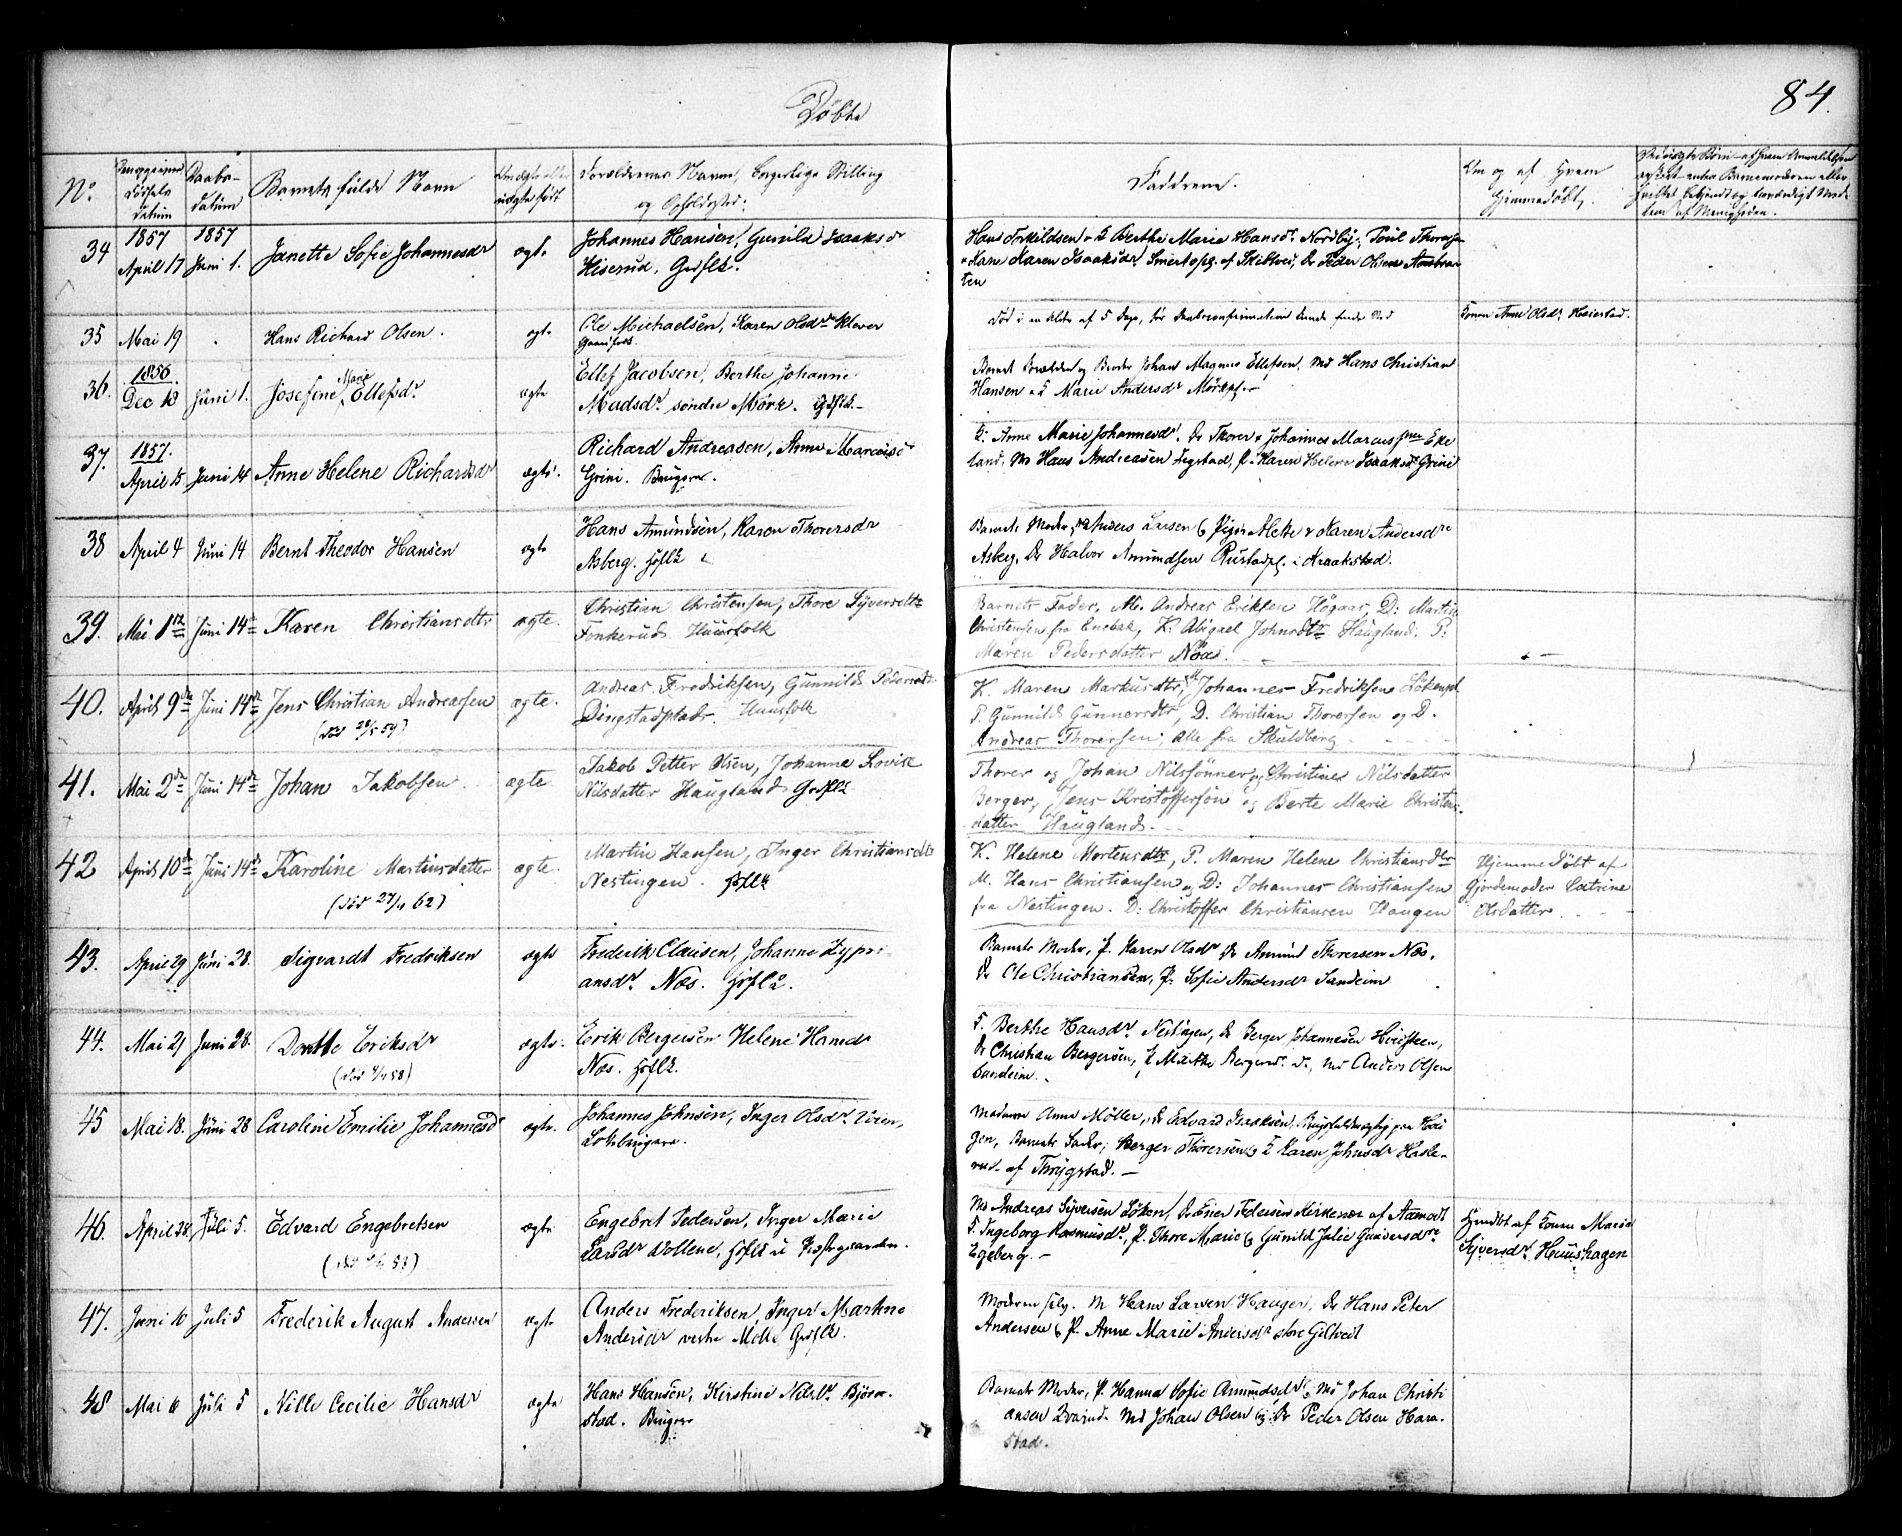 Døbte
84.
No.
datum
Daabs-
datum
Barnets fulde Navn
Forældrenes Navn, borgerlige Stilling
og Opholdssted.
Faddrene.
Om og af Hvem
Hjemmedøbt.
34
1857
April 17
1857
Juni 1.
Janette Sofie Johannesdr
ægte
Johannes Hansen, Gunild Isaaksdr
Hiserud, Grdflk.
Hans Torkildsen & K Berthe Marie Hansdr. Nordby, Poul
Karen Isaaksdr, af Skibtvet, Dr Peder Olsen
ten
35
Mai 19
Hans Richard Olsen.
ægte
Ole Michaelsen, Karen Olsdr Kløver
Død i en Alder af 5 Dage, før Daabsconfirmation kunde finde Sted
Konen Anne Olsdr. Heiestad.
36.
1856.
Dec 18
Juni 1.
Josefine Marie Ellefsdr
ægte
Ellef Jacobsen, Berthe Johanne
Madsdr. søndre Mörk. Gdflk.-
Barnets Forældre og Broder Johan Magnus Ellefsen, Md Hans Christian
Hansen & K Marie Andersdr Mörkpl.-
37.
1857.
April 15
Juni 14
Anne Helene Richardsdr
ægte
Richard Andreasen, Anne Marcusdr
Grini. Brugere.
K: Anne Marie Johannesdr. Dr Thorer & Johannes Marcussnr Eke
land, Md Hans Andreasen Degstad, P. Karen Helene Isaaksdr Grini
38
April 4
Juni 14
Bernt Theodor Hansen
ægte
Hans Amundsen, Karen Thorersdr
Asberg. Hsflk
Barnets Moder, Anders Larsen & Piger Alette & Karen Andersdre
Asberg, Dr Halvor Amundsen Rustadpl. i Kraakstad.
39.
Mai 1ste
Juni 14de
Karen Christiansdtr
ægte.
Christian Christensen, Thore Syversdtr
Finkerud. Huusfolk
Barnets Fader, M. Andreas Eriksen Högaas, D: Martin
Christensen fra Enebak, K: Abigael Johnsdtr Haugland. P:
Maren Pedersdatter Nöas.
40.
April 9de
Juni 14de
Jens Christian Andreassen
(død 28/5 59)
ægte.
Andreas Fredriksen, Gunnild Pedersdtr
Dingstadplads. Huusfolk
K. Maren Markusdtr, M Johannes Fredriksen Lökenpl.
P. Gunnild Gunnersdtr, D. Christian Thorersen og D.
Andreas Thorersen, alle fra Skuldberg
41.
Mai 2de
Juni 14de
Johan Jakobsen
ægte
Jakob Petter Olsen, Johanne Lovise
Nilsdatter Haugland Grdflk
Thorer og Johan Nilssønner og Christine Nilsdatter
Berger, Jens Kristoffersön og Berte Marie Christens
datter Haugland.
42
April 10de
Juni 14de
Karoline Martinsdatter
(død 27/4 62)
ægte.
Martin Hansen, Inger Christiansdtr
Nestingen. Hsflk
K. Helene Mortensdtr, P. Maren Helene Christiansdtr
M. Hans Christiansen og D: Johannes Christiansen
fra Nestingen. D: Christoffer Christiansen Haugen
Hjemmedøbt af
Gjordemoder Catrine
Olsdatter.
43.
April 29
Juni 28.
Sigvardt Fredriksen
ægte
Frederik Clausen, Johanne Zypri
ansdr. Næs. Hsflk.
Barnets Moder, P. Karen Olsdr Dr Amund Thorersen Næs.
Dr Ole Christiansen, P. Sofie Andersdr Sandeim
44.
Mai 21
Juni 28.
Dorthe Eriksdr
ægte.
Erik Bergersen Helene Hansdr
Næs. Hsflk.
K. Berthe Hansdr. Nestingen, Dr Berger Johannesen Hvidsteen,
Dr Christian Bergersen, K Marthe Bergersdr. do, Md Anders Olsen
Sandeim.
45
Mai 18.
Juni 28
Caroline Emilie Johannesd
ægte.
Johannes Johnsen, Inger Olsdr Vien,
Madame Anne Møller, Dr Edvard Isaaksen, paa Hau
gen, Barnets Fader, Berger Thorersen & K Karen Johnsdr Hasle-
rud af Thrygstad.-
46.
April 28.
Juli 5.
Edvard Engebretsen
ægte
Engebret Pedersen, Inger Marie
Larsdr Vollene, Hsflk u Prestegaarden.
Md Andreas Syversen Løken, Dr Peder Pedersen Kirkenær af Aamodt
K. Ingeborg Rasmusdr, P. Thore Marie & Gunild Julie Gundersdre
Egeberg.-
Hjmdbt af Konen Maria
Syversdr. Huushagen
47.
Juni 16
Juli 5
Frederik August Andersen
ægte
Anders Frederiksen, Inger Marthe
Andersdr vestre Molle Grdflk.
Moderen selv. M Hans Larsen Hauger, Dr Hans Peter
Andersen & P. Anne Marie Andersdr store Giltvedt
48
Mai 6
Juli 5
Nille Cecilie Hansdr
ægte
Hans Hansen, Kirstine Nilsdr. Björn-
stad. Brugere
Barnets Moder, P. Hanna Sofie Amundsdr, Md Johan Christi
ansen Kvarnd Md Johan Olsen & Dr Peder Olsen Hara-
stad.